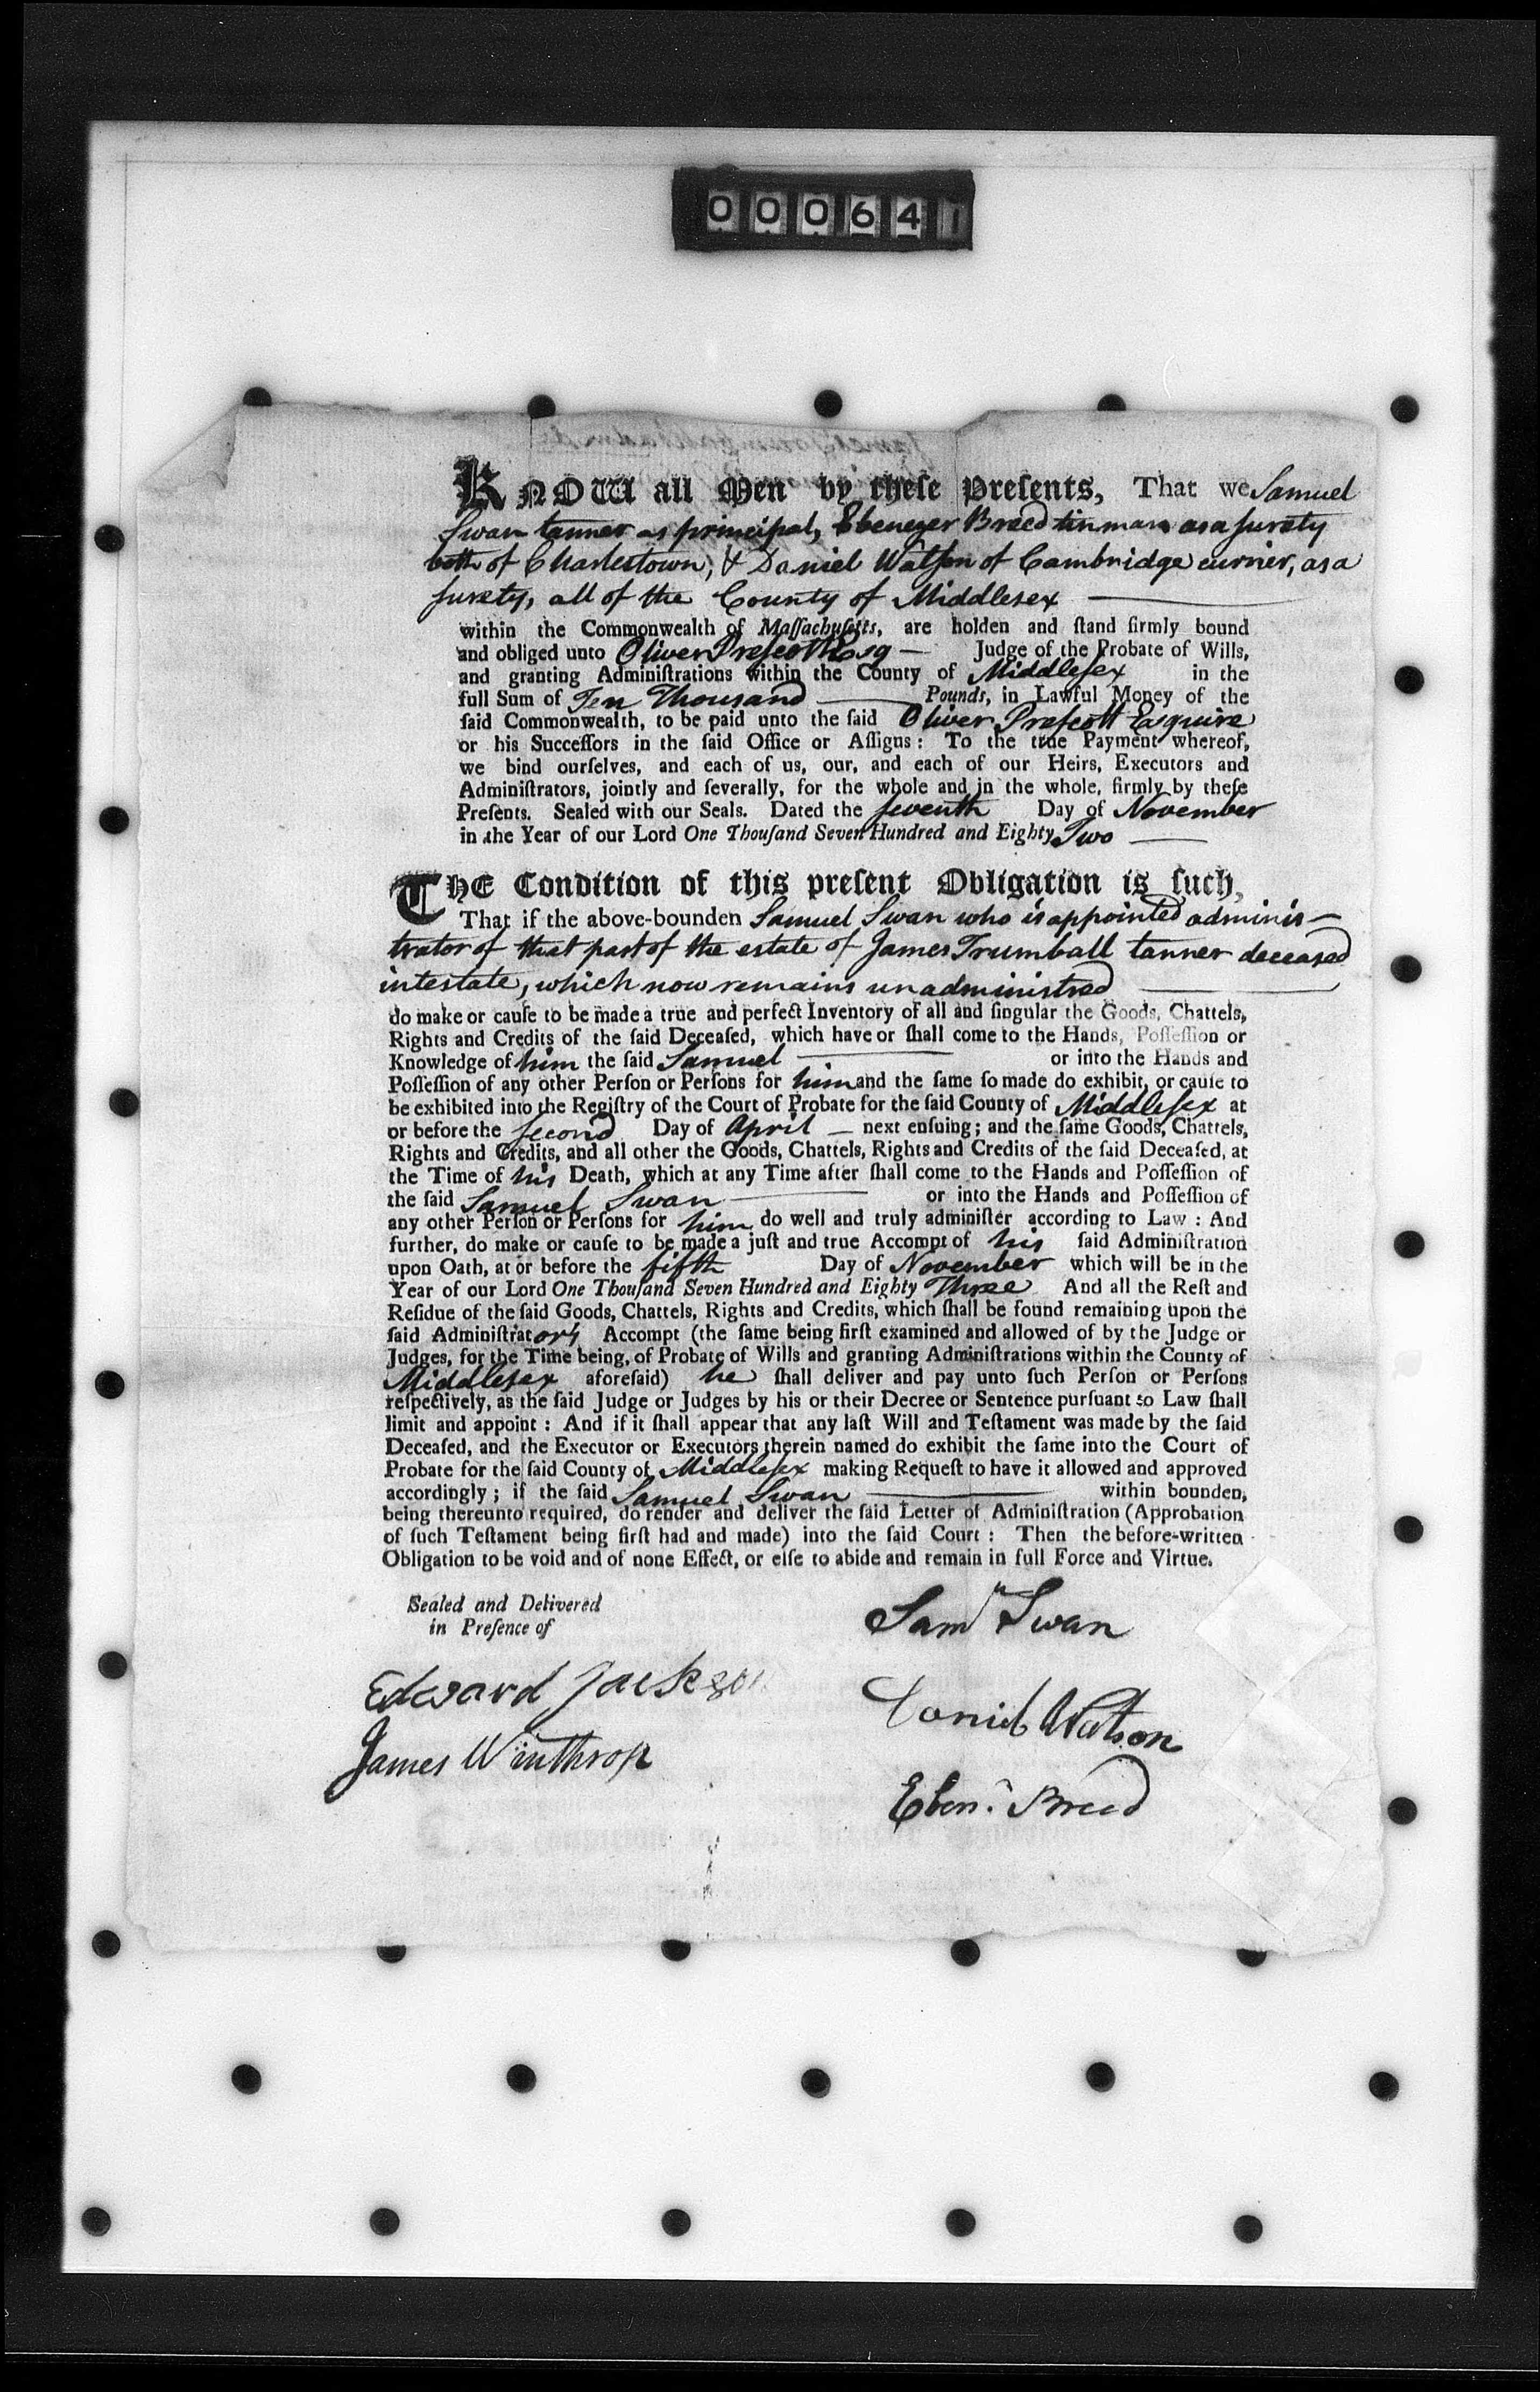 000641
KNOW all Men by theſe Preſents, That we Samuel
Swan tanner as principal, Ebenezer Breed tinman as a ſurety
both of Charlestown, & Daniel Watſon of Cambridge currier, as a
ſurety, all of the County of Middlesex
within the Commonwealth of Maſſachuſetts, are holden and ſtand firmly bound
and obliged unto Oliver Preſcott Esq Judge of the Probate of Wills,
and granting Adminiſtrations within the County of Middleſex in the
full Sum of Ten Thousand Pounds, in Lawful Money of the
ſaid Commonwealth, to be paid unto the ſaid Oliver Preſcott Esquire
or his Succeſſors in the ſaid Office or Aſſigns: To the true Payment whereof,
we bind ourſelves, and each of us, our, and each of our Heirs, Executors and
Adminiſtrators, jointly and ſeverally, for the whole and in the whole, firmly by theſe
Preſents. Sealed with our Seals. Dated the ſeventh Day of November
in the Year of our Lord One Thouſand Seven Hundred and Eighty Two
THE Condition of this preſent Obligation is ſuch,
That if the above-bounden Samuel Swan who is appointed adminis-
trator of that part of the estate of James Trumball tanner deceased
intestate, which now remains unadministred
do make or cauſe to be made a true and perfect Inventory of all and ſingular the Goods, Chattels,
Rights and Credits of the ſaid Deceaſed, which have or ſhall come to the Hands, Poſſeſſion or
Knowledge of him the ſaid Samuel or into the Hands and
Poſſeſſion of any other Perſon or Perſons for him and the ſame ſo made do exhibit, or cauſe to
be exhibited into the Regiſtry of the Court of Probate for the ſaid County of Middleſex at
or before the ſecond Day of April next enſuing; and the ſame Goods, Chattels,
Rights and Credits, and all other the Goods, Chattels, Rights and Credits of the ſaid Deceaſed, at
the Time of his Death, which at any Time after ſhall come to the Hands and Poſſeſſion of
the ſaid Samuel Swan or into the Hands and Poſſeſſion of
any other Perſon or Perſons for him do well and truly adminiſter according to Law: And
further, do make or cauſe to be made a juſt and true Accompt of his ſaid Adminiſtration
upon Oath, at or before the fifth Day of November which will be in the
Year of our Lord One Thouſand Seven Hundred and Eighty Three And all the Reſt and
Reſidue of the ſaid Goods, Chattels, Rights and Credits, which ſhall be found remaining upon the
ſaid Adminiſtrator's Accompt (the ſame being firſt examined and allowed of by the Judge or
Judges, for the Time being, of Probate of Wills and granting Adminiſtrations within the County of
Middleſex aforeſaid) he ſhall deliver and pay unto ſuch Perſon or Perſons
reſpectively, as the ſaid Judge or Judges by his or their Decree or Sentence purſuant to Law ſhall
limit and appoint: And if it ſhall appear that any laſt Will and Teſtament was made by the ſaid
Deceaſed, and the Executor or Executors therein named do exhibit the ſame into the Court of
Probate for the ſaid County of Middleſex making Requeſt to have it allowed and approved
accordingly; if the ſaid Samuel Swan within bounden,
being thereunto required, do render and deliver the ſaid Letter of Adminiſtration (Approbation
of ſuch Teſtament being firſt had and made) into the ſaid Court: Then the before-written
Obligation to be void and of none Effect, or elſe to abide and remain in full Force and Virtue.
Sealed and Delivered
in Preſence of
Saml Swan
Edward Jackson
Daniel Watson
James Winthrop
Ebenr. Breed